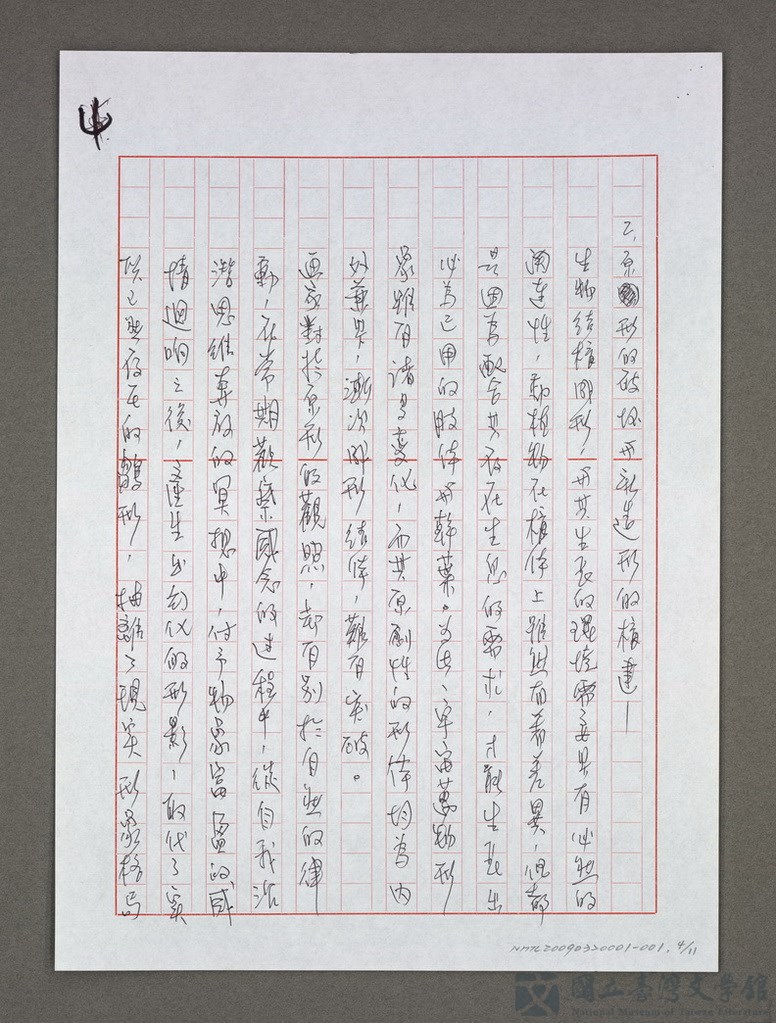 乙、原形的破坏与新造形的構建—
生物結構形，与其生長的環境需要具有必然的
関連性，動植物在構体上雖然有着差異，但都
是因為配合其存在生息的需求，才能生長出
必為己用的肢体与幹葉。为此、宇宙萬物形
象雖有諸多变化，而其原創性的形体均為内
外兼具，漸次形結体，難有突破。
画家對於原形的觀照，却有別於自然的律
動，在常期觀察國念的过程中，從自我沿
潛思維奔放的冥想中，付予物象富盈的感
情迴响之後，產生出幻化的形影，取代了实
质已然存在的形，抽離了現实形象格局
4
NMTL20090320001-001, 4/11
國立臺灣文學館
National Museum of Taiwan Literature